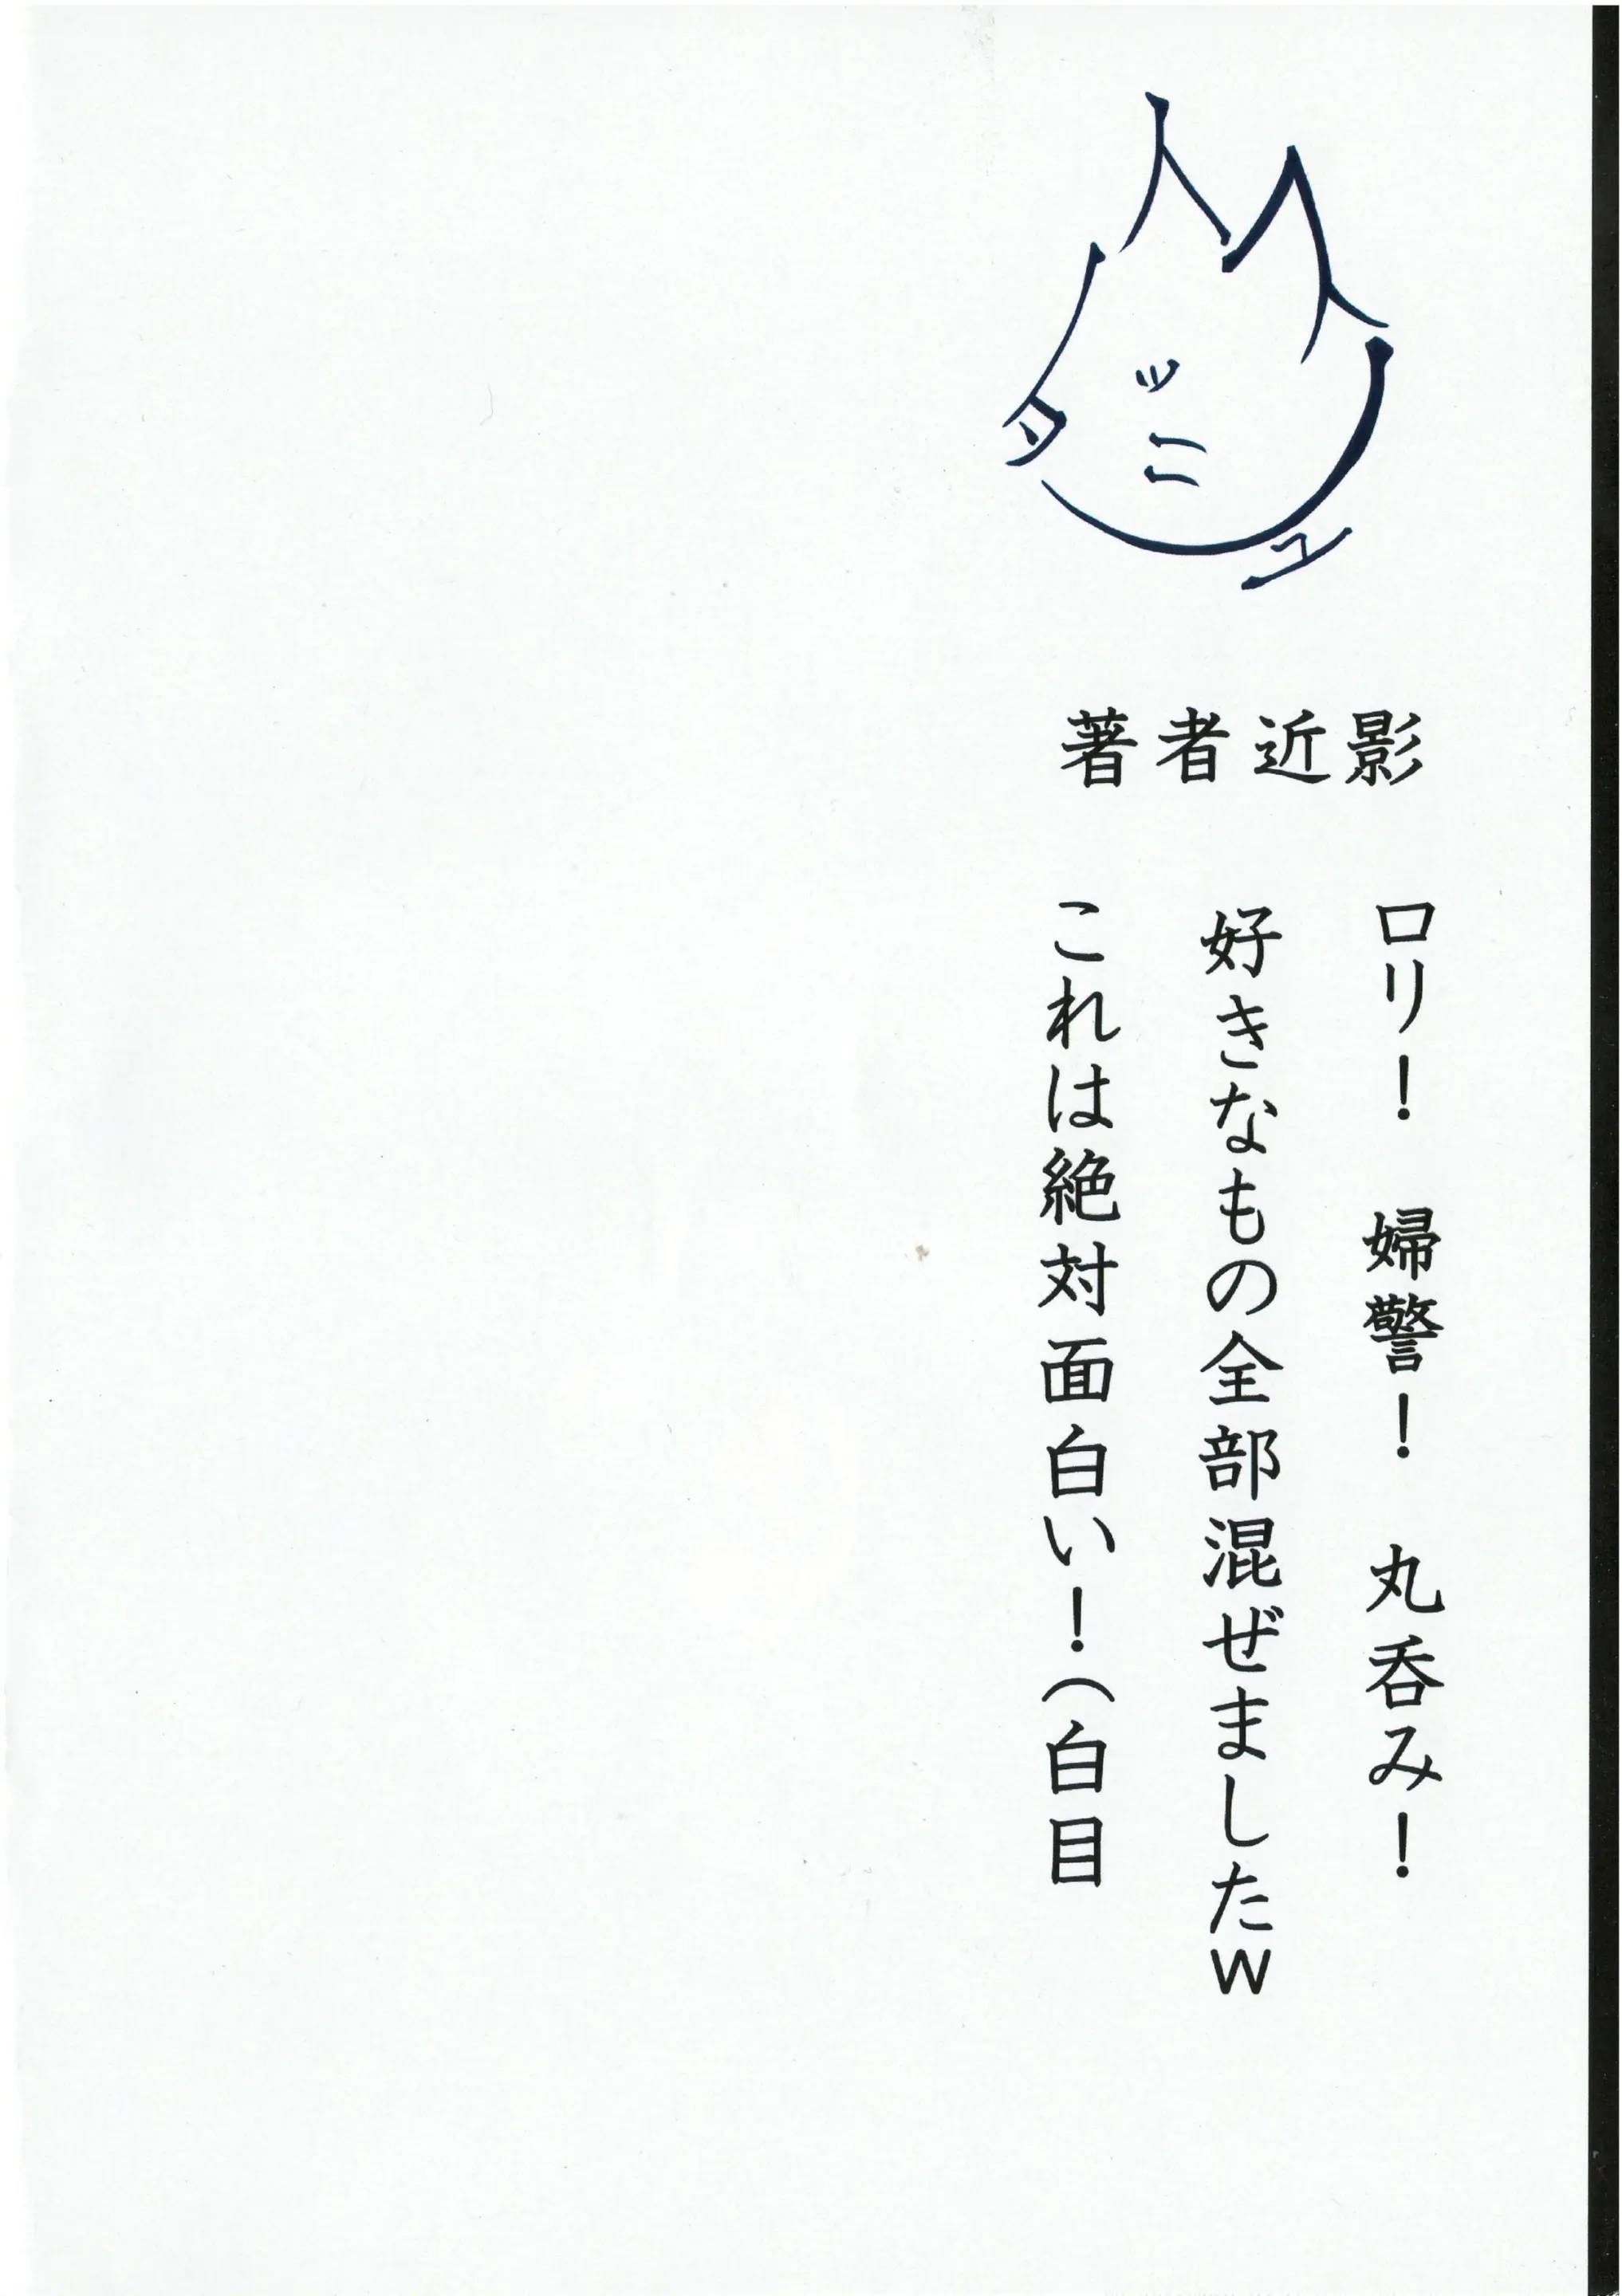 著者近影
ロリ！　婦警！　丸呑み！
好きなもの全部混ぜましたw
これは絶対面白い！（白目